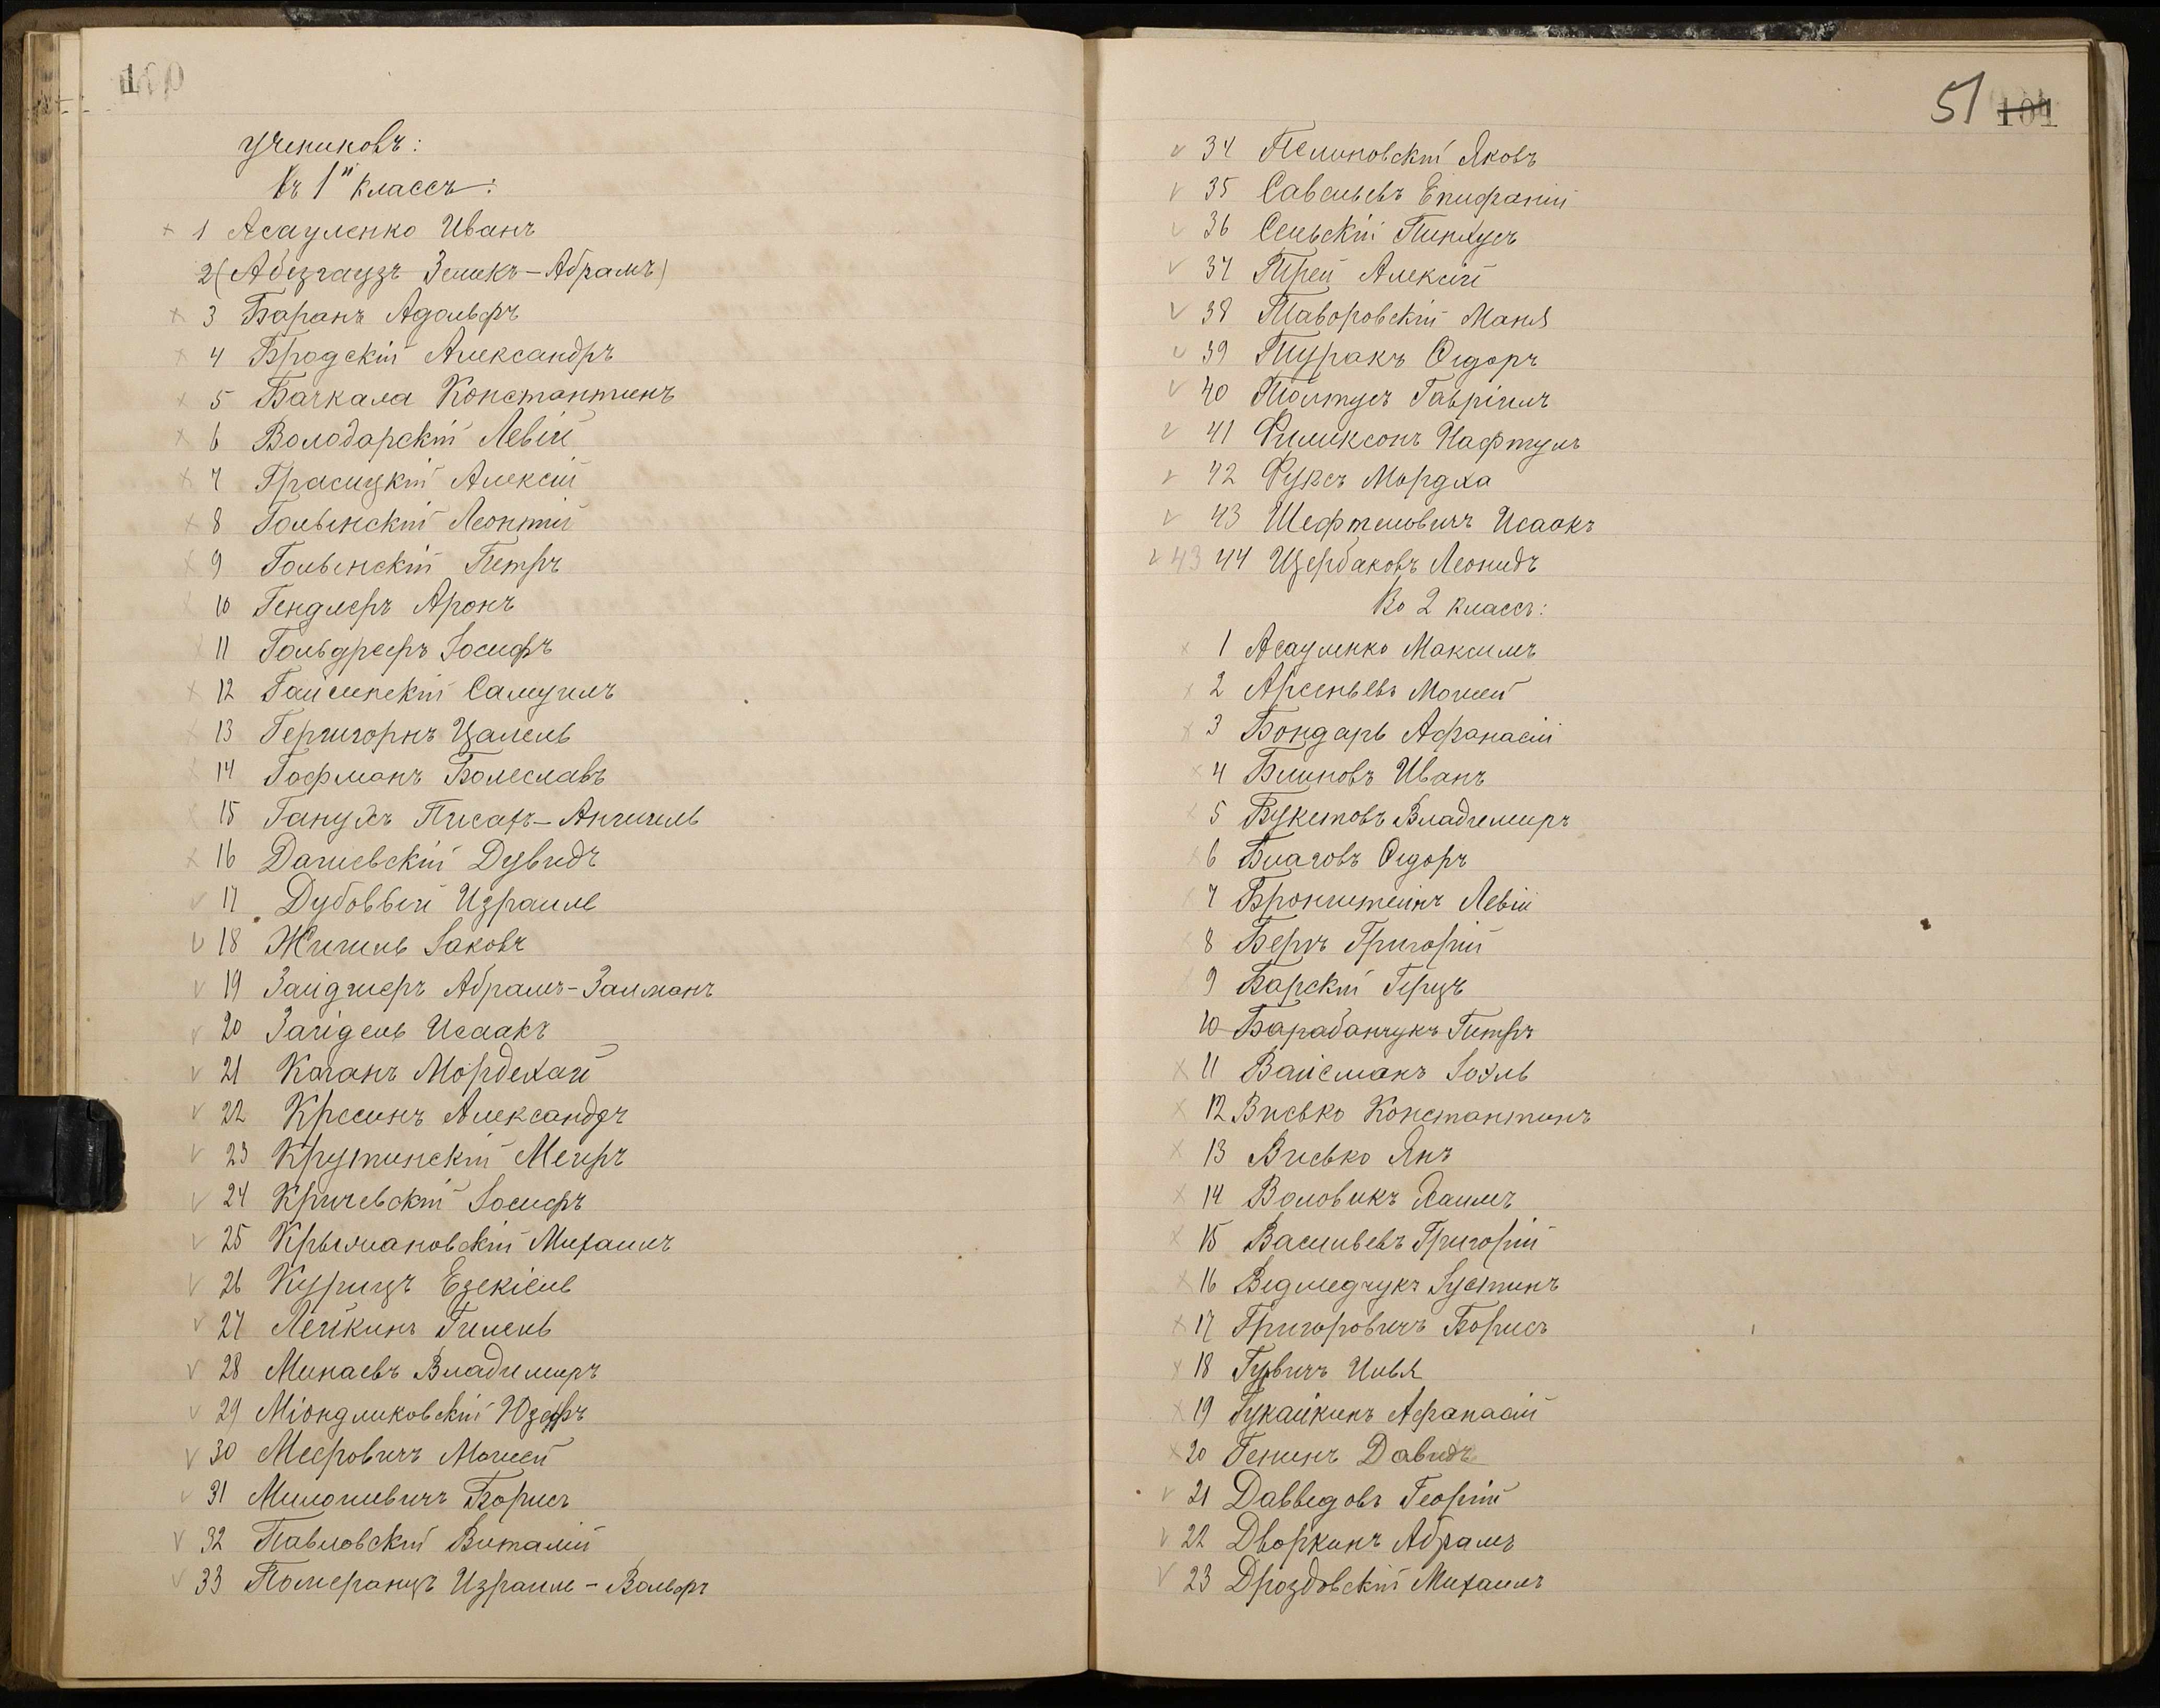 100
учениковъ:
Въ 1й классъ:
1 Асауленко Иванъ
2 (Абезгаузъ Зеликъ-Абрамъ)
3 Баранъ Адольфъ
4 Бродскій Александръ
5 Бачкала Константинъ
6 Володарскій Левій
7 Грасицкій Алексій
8 Гольвенскій Леонтій
9 Гольвенскій Петръ
10 Гендлеръ Аронъ
11 Гольдреръ Іосифъ
12 Гайсинскій Самуилъ
13 Гершгорнъ Цалель
14 Гофманъ Болеславъ
15 Ганухъ Писахъ-Анчиль
16 Дашевскій Дувидъ
17 Дубовый Израиль
18 Жигиль Іаковъ
19 Зайдшеръ Абрамъ-Залманъ
20 Загідель Исаакъ
21 Каганъ Мордехай
22 Кресинъ Александръ
23 Крутинскій Меиръ
24 Кричевскій Іосифъ
25 Крыжановскій Михаилъ
26 Курицъ Езекіель
27 Лейкинъ Гилель
28 Минаевъ Владимиръ
29 Міондликовскій Юзефъ
30 Мееровичъ Мошей
31 Милошевичъ Борисъ
32 Павловскій Виталій
33 Померанцъ Израиль-Вольфъ
51 101
34 Пелиновскій Яковъ
35 Савельевъ Епифаній
36 Сельскій Пинхусъ
37 Трей Алексій
38 Таворовскій Маня
39 Туракъ Ѳедоръ
40 Толтусъ Гавріилъ
41 Филиксонъ Нафтулъ
42 Фуксъ Мордха
43 Шефтеловичъ Исаакъ
43 44 Щербаковъ Леонидъ
Во 2 классъ:
1 Асауленко Максимъ
2 Арсеньевъ Мошей
3 Бондарь Афанасій
4 Блиновъ Иванъ
5 Букетовъ Владимиръ
6 Благовъ Ѳедоръ
7 Бронштейнъ Левій
8 Бергъ Григорій
9 Барскій Герцъ
10 Барабанчукъ Петръ
11 Вайсманъ Іохль
12 Висько Константинъ
13 Висько Янъ
14 Воловикъ Хаимъ
15 Васильевъ Григорій
16 Ведмедчукъ Іустинъ
17 Григоровичъ Борисъ
18 Гурвичъ Илья
19 Гукайкинъ Афанасій
20 Генинъ Давидъ
21 Давыдовъ Георгій
22 Дворкинъ Абрамъ
23 Дроздовскій Михаилъ